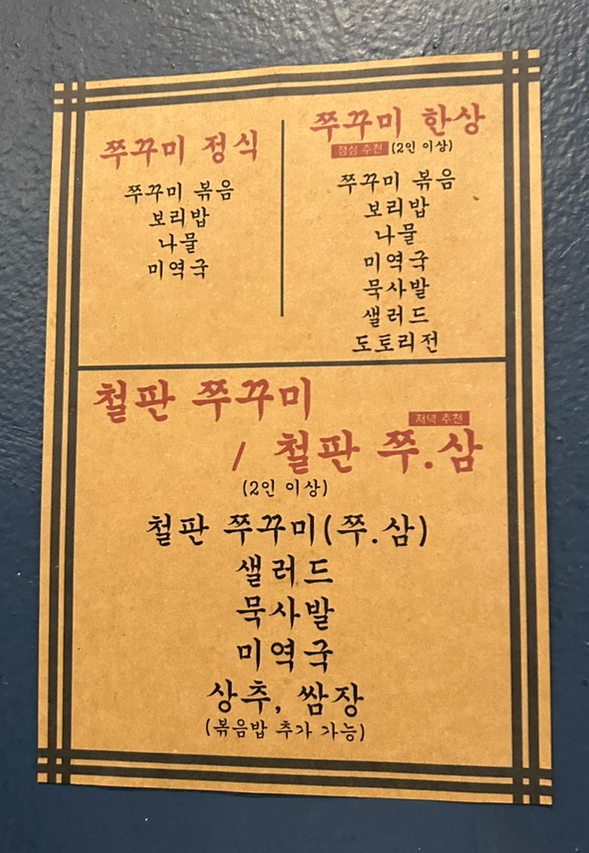 쭈꾸미 정식
쭈꾸미 볶음
보리밥
나물
미역국
쭈꾸미 한상
점심 추천 (2인 이상)
쭈꾸미 볶음
보리밥
나물
미역국
묵사발
샐러드
도토리전
철판 쭈꾸미
저녁 추천
/ 철판 쭈.삼
(2인 이상)
철판 쭈꾸미(쭈.삼)
샐러드
묵사발
미역국
상추, 쌈장
(볶음밥 추가 가능)